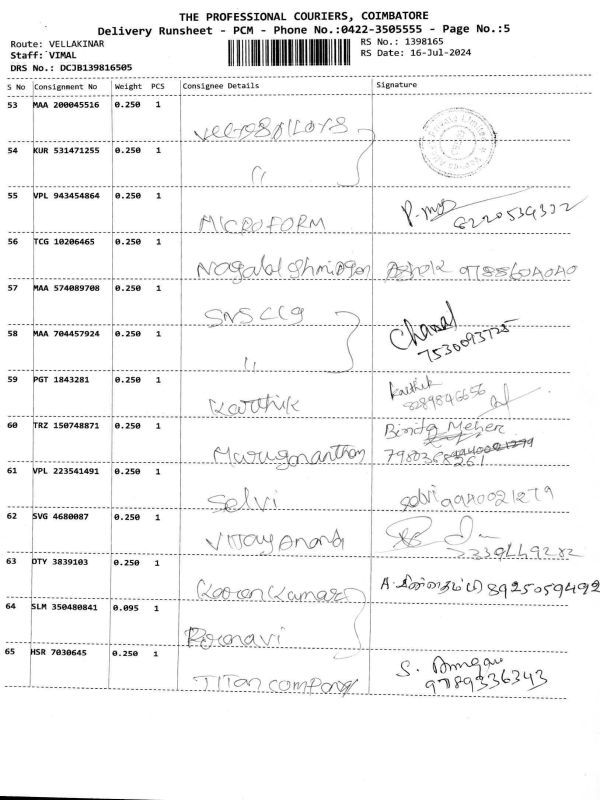 THE PROFESSIONAL COURIERS, COIMBATORE
Delivery Runsheet - PCM - Phone No.:0422-3505555 - Page No.:5
Route: VELLAKINAR
RS No.: 1398165
Staff: VIMAL
RS Date: 16-Jul-2024
DRS No.: DCJB139816505
S No Consignment No Weight PCS Consignee Details Signature
53 MAA 200045516 0.250 1
54 KUR 531471255 0.250 1 "
55 VPL 943454864 0.250 1 MICROFORM 8220539332
56 TCG 10206465 0.250 1 Ashok
57 MAA 574089708 0.250 1 SNS
58 MAA 704457924 0.250 1 " 7530093725
59 PGT 1843281 0.250 1 Karthik karthik 8289846656
60 TRZ 150748871 0.250 1 Binita Meher
61 VPL 223541491 0.250 1 Selvi selvi 9940021279
62 SVG 4680087 0.250 1 Vijay Anand
63 DTY 3839103 0.250 1 8925059492
64 SLM 350480841 0.095 1
65 HSR 7030645 0.250 1 Titan company 9789336343